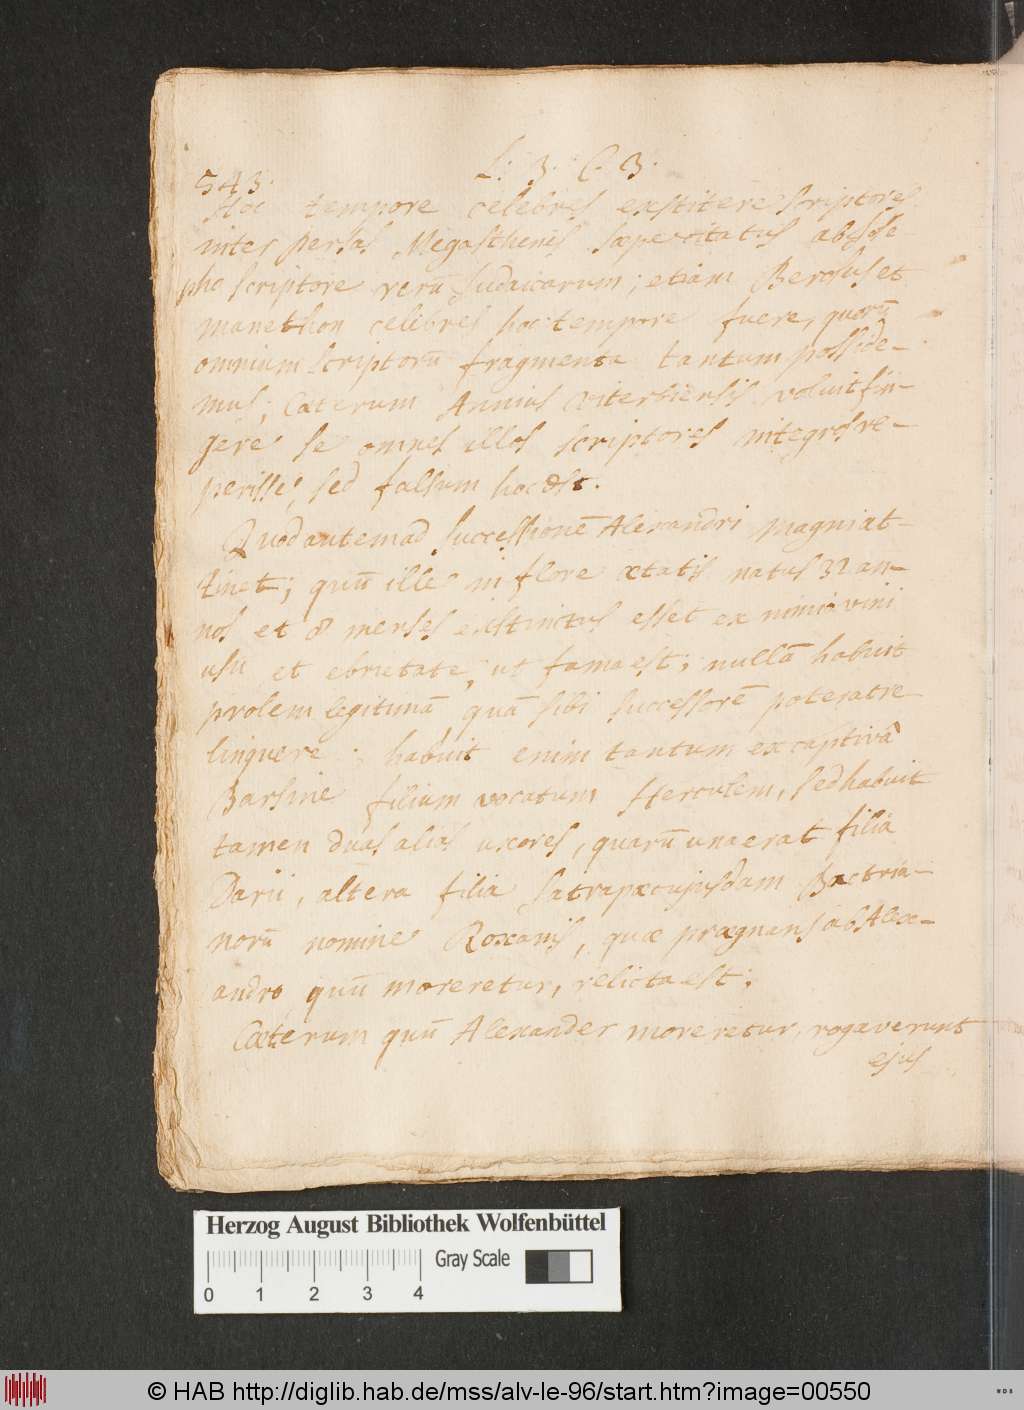 543. L. 3. C. 3.
Hoc tempore celebres exstitere scriptores
inter persas Megasthenes sæpe citatus ab Jose-
pho scriptore rerū Judaicarum; etiam Berosus et
manethon celebres hoc tempore fuere, quorū
omnium scriptorū fragmenta tantum posside-
mus; Cæterum Annius viterbiensis voluit fin-
gere se omnes illos scriptores integros re-
perisse, sed falsum hoc est.
Quod autem ad successionē Alexandri magni at-
tinet; quū ille in flore ætatis natus 32 an-
nos et 8 menses exstinctus esset ex nimio vini
usu et ebrietate, ut fama est; nullā habuit
prolem legitimā quā sibi successorē poterat re
linquere; habuit enim tantum ex captivâ
Barsine filium vocatum Herculem, sed habuit
tamen duas alias uxores, quarū una erat filia
Darii, altera filia satrapæ cujusdam Bactria-
norū nomine Roxanis, quæ prægnans ab Alex-
andro quū moreretur, relicta est;
Cæterum quū Alexander moreretur, rogaverunt
ejus
Herzog August Bibliothek Wolfenbüttel
Gray Scale
0 1 2 3 4
© HAB http://diglib.hab.de/mss/alv-le-96/start.htm?image=00550